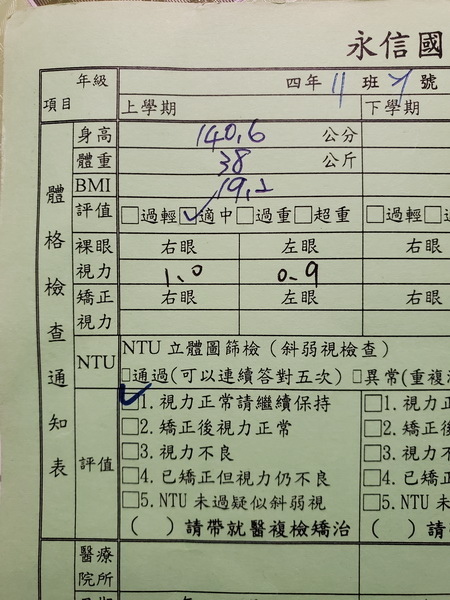 永信國
年級 四年 11 班 號
項目 上學期 下學期
體格檢查通知表
身高 140.6 公分
體重 38 公斤
BMI 19.2
評值 □過輕 ☑適中 □過重 □超重 □過輕
裸眼視力 右眼 左眼 右眼
1.0 0.9
矯正視力 右眼 左眼 右眼
NTU NTU 立體圖篩檢（斜弱視檢查）
□通過(可以連續答對五次) □異常(重複
評值
☑1. 視力正常請繼續保持 □1. 視力正
□2. 矯正後視力正常 □2. 矯正後
□3. 視力不良 □3. 視力不
□4. 已矯正但視力仍不良 □4. 已矯正
□5. NTU 未過疑似斜弱視 □5. NTU 未
( ) 請帶就醫複檢矯治 ( ) 請
醫療院所